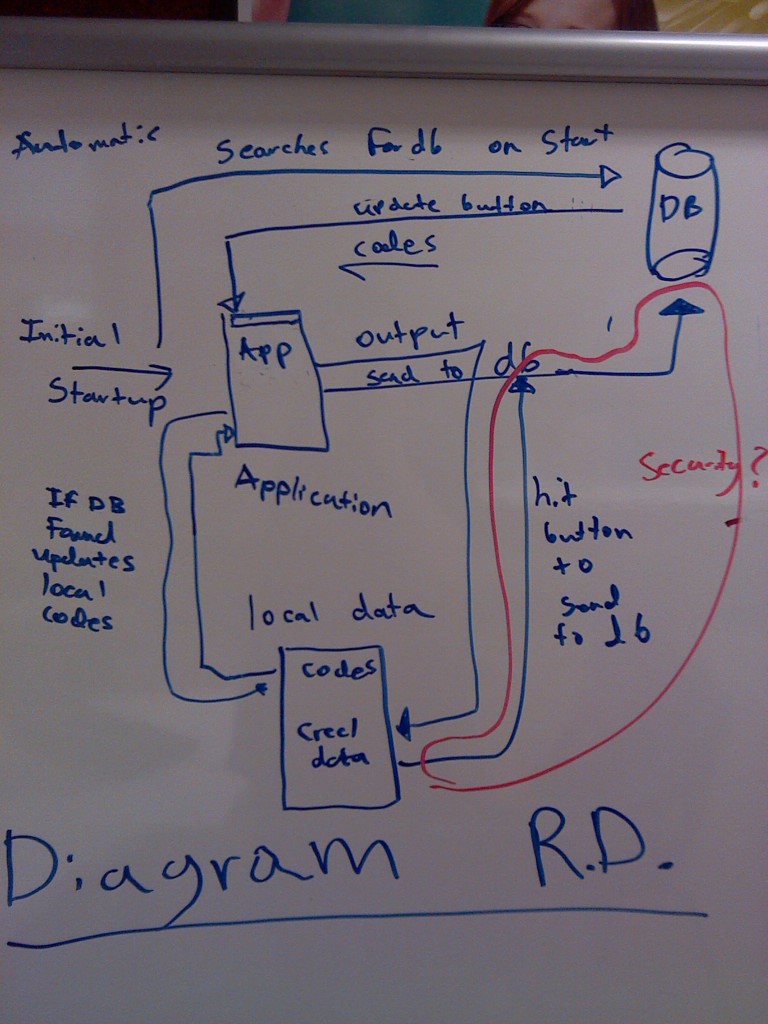 Automatic
Searches For db on Start
update button
DB
codes
Initial
Startup
App
output
send to db
Security?
Application
If DB
Found
updates
local
codes
hit
button
to
send
to db
local data
codes
Creel
data
Diagram R.D.